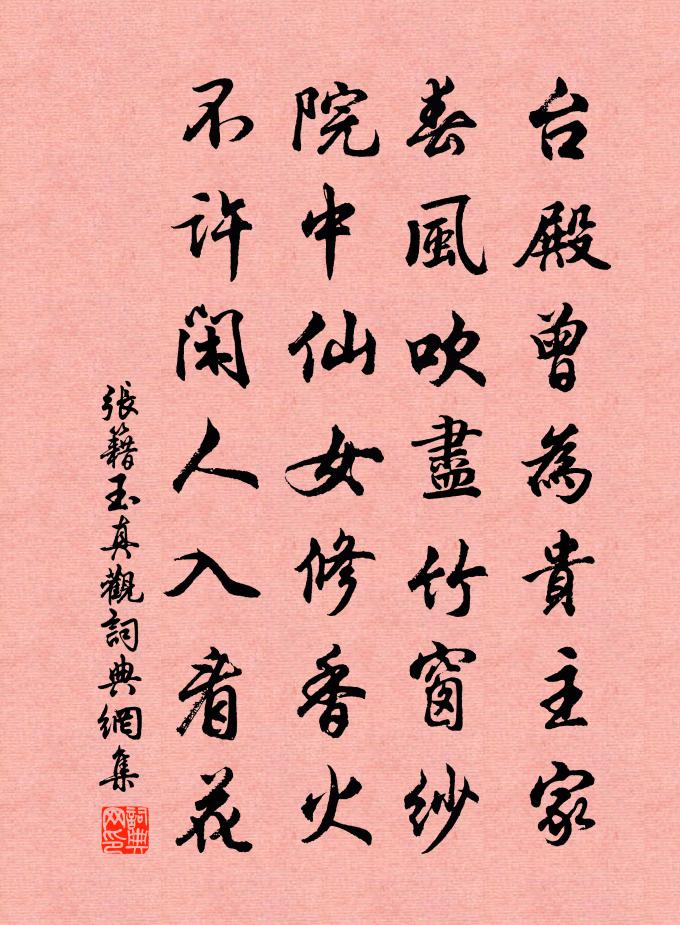 台殿曾為貴主家
春風吹盡竹窗紗
院中仙女修香火
不許閑人入看花
張籍玉真觀詞典網集
詞典网印